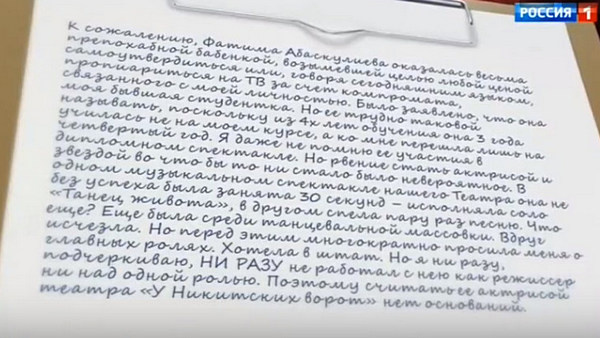 РОССИЯ 1
К сожалению, Фатима Абаскулиева оказалась весьма
препохабной бабенкой, возымевшей целью любой ценой
самоутвердиться или, говоря сегодняшним языком,
пропиариться на ТВ за счет компромата,
связанного с моей личностью. Было заявлено, что она
моя бывшая студентка. Но ее трудно таковой
называть, поскольку из 4х лет обучения она 3 года
училась не на моем курсе, а ко мне перешла лишь на
четвертый год. Я даже не помню ее участия в
дипломном спектакле. Но рвение стать актрисой и
звездой во что бы то ни стало было невероятное. В
одном музыкальном спектакле нашего Театра она не
без успеха была занята 30 секунд – исполняла соло
«Танец живота», в другом спела пару раз песню. Что
еще? Еще была среди танцевальной массовки. Вдруг
исчезла. Но перед этим многократно просила меня о
главных ролях. Хотела в штат. Но я ни разу,
подчеркиваю, НИ РАЗУ не работал с нею как режиссер
ни над одной ролью. Поэтому считать ее актрисой
театра «У Никитских ворот» нет оснований.